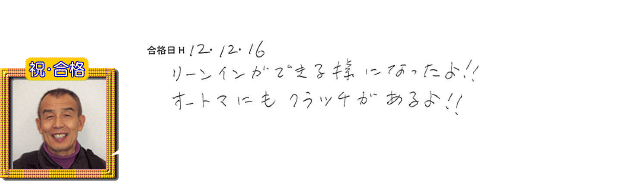 祝・合格
合格日 H 12.12.16
リーンインができる様になったよ!!
オートマにもクラッチがあるよ!!